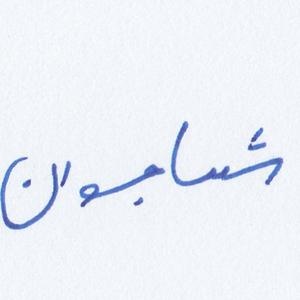 شما جوان